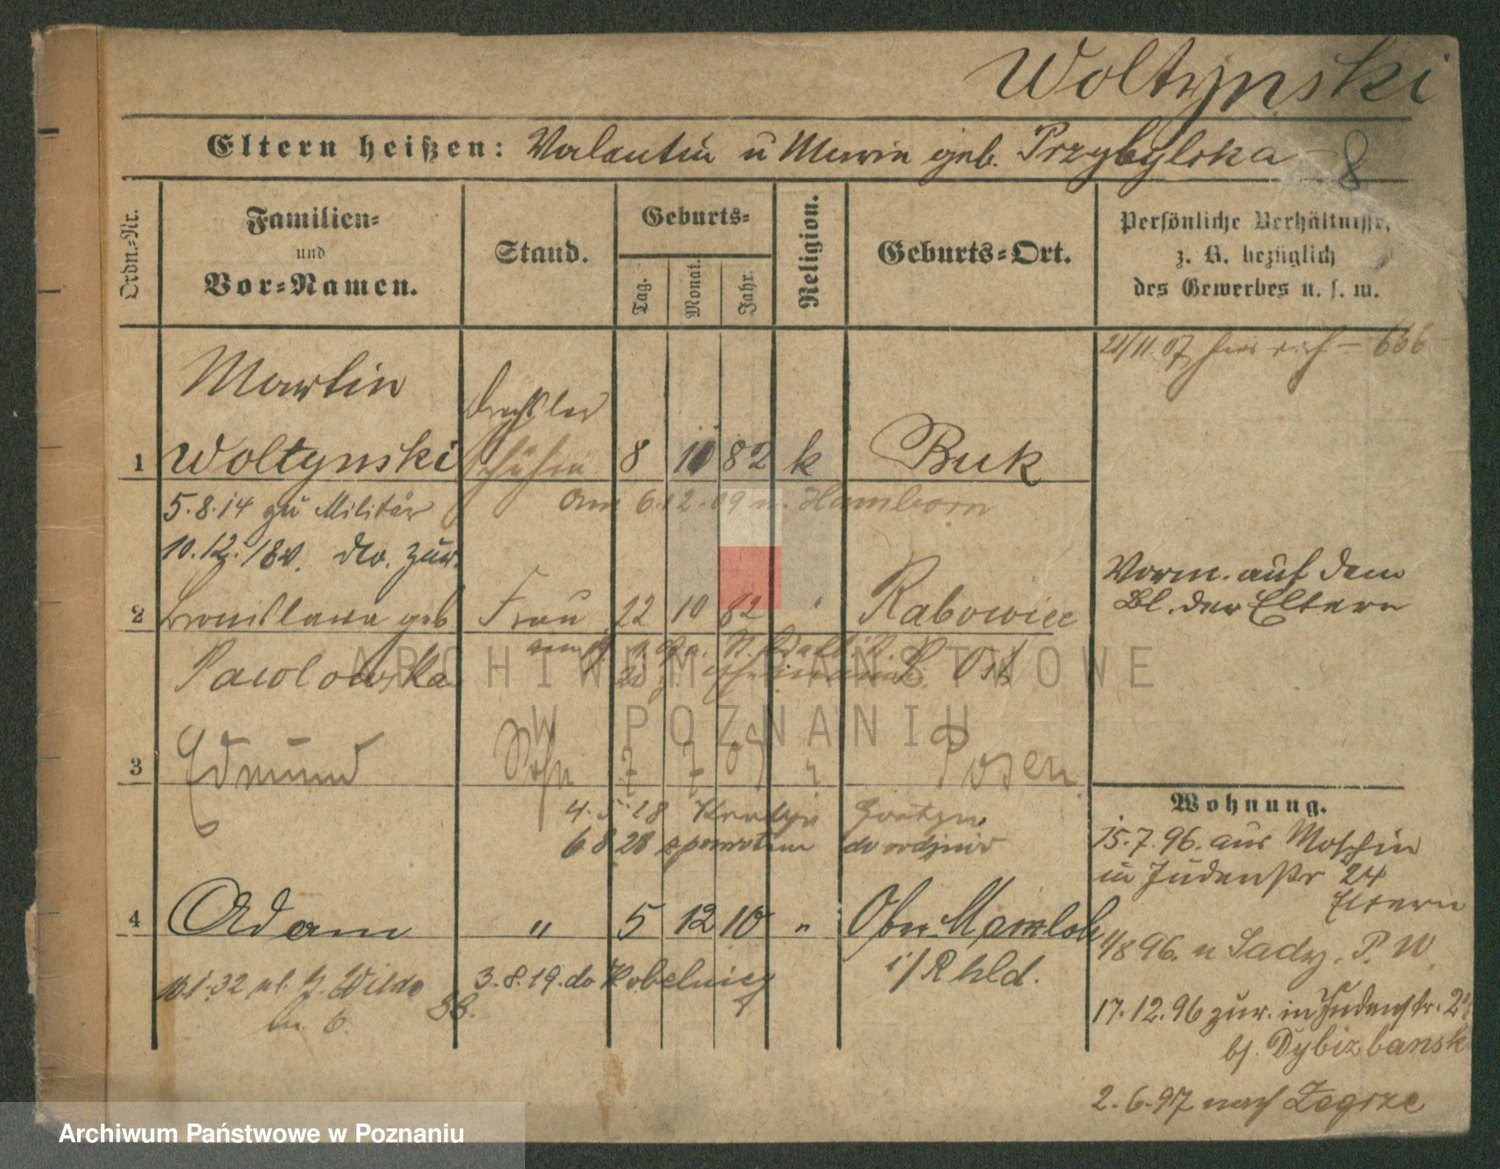 Woltynski
Eltern heißen: Valentin u Marie geb. Przybylska
8
Ordn.-Nr.
Familien-
und
Vor-Namen.
Stand.
Geburts-
Tag.
Monat.
Jahr.
Religion.
Geburts-Ort.
Persönliche Verhältnisse,
z. B. bezüglich
des Gewerbes u. s. w.
21/11 07
Martin
Drechsler
1 Woltynski 8 10 82 k Buk
5.8.14 zu Militär
am 6.12.09 n. Hamborn
10.12.18 v. dto. zur.
Vorm. auf dem
Bl. der Eltern
2 Bronislawa geb Frau 22 10 82 " Rabowice
Pawlowska
3 Edmund Sohn 7 7 09 Posen
4.5.18
6 8 28
4 Adam " 5 12 10 " Ober Marxloh
i/Rhld.
3.8.19. do Kobelnicy
Wilda
Wohnung.
15.7.96. aus Moschin
in Judenstr 24
Eltern
1/8 96. n Sady. P. W.
17.12.96 zur. in Judenstr. 2
bj. Dybizbanski
2.6.97 nach Zegrze
ARCHIWUM PAŃSTWOWE
W POZNANIU
Archiwum Państwowe w Poznaniu